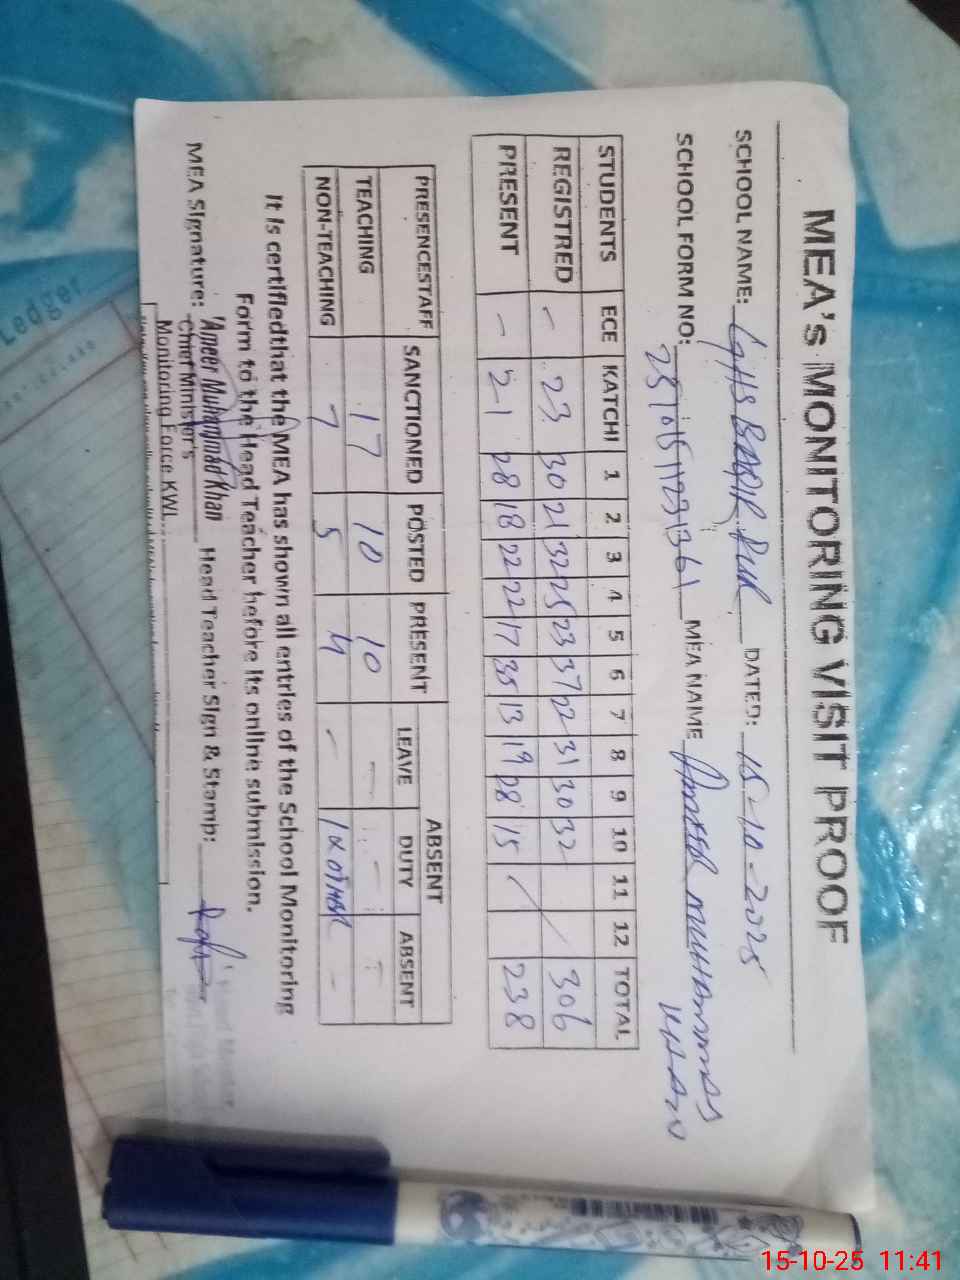 MEA's MONITORING VISIT PROOF
SCHOOL NAME: GHS BAQIR PUR DATED: 15-10-2025
SCHOOL FORM NO: MEA NAME AMEER MUHAMMAD KHAN
STUDENTS ECE KATCHI 1 2 3 4 5 6 7 8 9 10 11 12 TOTAL
REGISTRED - 23 30 21 32 25 23 37 22 31 30 32 306
PRESENT - 21 28 18 22 22 17 35 13 19 28 15 238
PRESENCESTAFF SANCTIONED POSTED PRESENT ABSENT
LEAVE DUTY ABSENT
TEACHING 17 10 10 - - -
NON-TEACHING 7 5 4 - -
It is certifiedthat the MEA has shown all entries of the School Monitoring
Form to the Head Teacher before its online submission.
MEA Signature: Ameer Muhammad Khan Head Teacher Sign & Stamp:
Chief Minister's
Monitoring Force KWL
Ledger
15-10-25 11:41